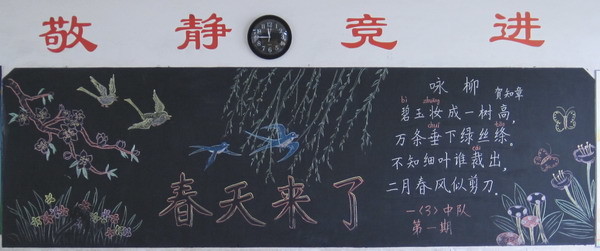 敬静竞进
咏柳 贺知章
bì zhuāng
碧玉妆成一树高,
chuí tāo
万条垂下绿丝绦。
cái
不知细叶谁裁出,
二月春风似剪刀。
春天来了
一(3)中队
第一期